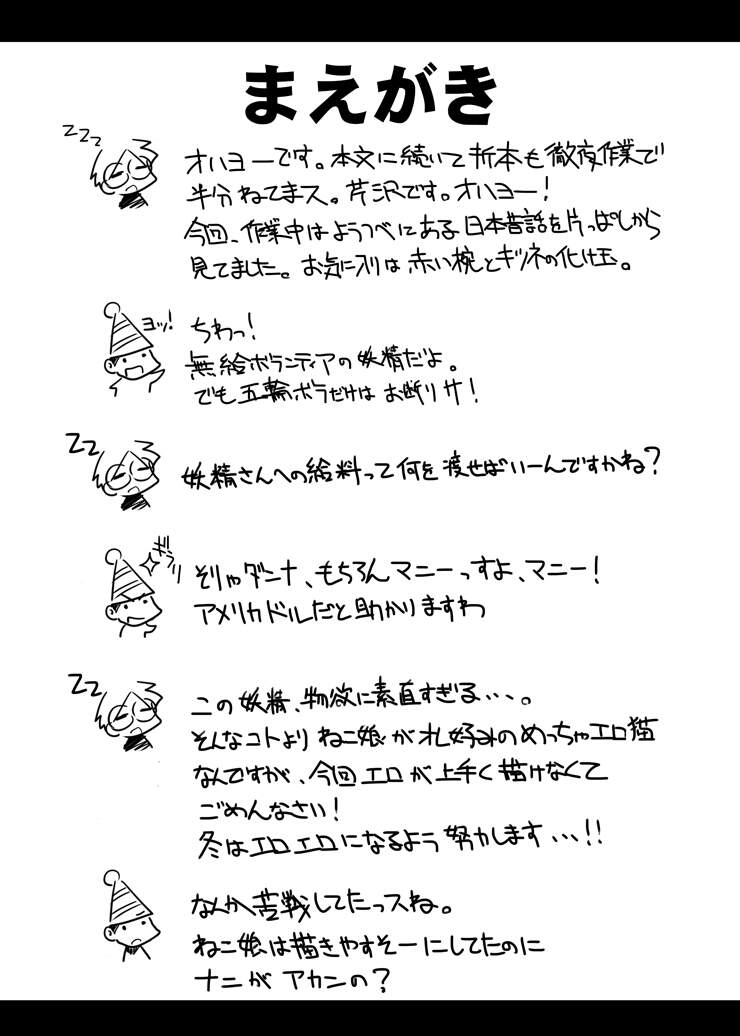 まえがき
ZZZ
オハヨーです。本文に続いて折本も徹夜作業で
半分ねてまス。芹沢です。オハヨー!
今回、作業中はようつべにある日本昔話を片っぱしから
見てました。お気に入りは赤い椀とキツネの化け玉。
ヨッ!
ちわっ!
無給ボランティアの妖精だよ。
でも五輪ボラだけはお断りサ!
ZZ
妖精さんへの給料って何を渡せばいーんですかね?
ギラリ
そりゃダンナ、もちろんマニーっすよ、マニー!
アメリカドルだと助かりますわ
ZZ
この妖精、物欲に素直すぎる...。
そんなコトよりねこ娘が札好みのめっちゃエロ猫
なんですが、今回エロが上手く描けなくて
ごめんなさい!
冬はエロエロになるよう努力します...!!
なんか苦戦してたっスね。
ねこ娘は描きやすそーにしてたのに
ナニがアカンの?